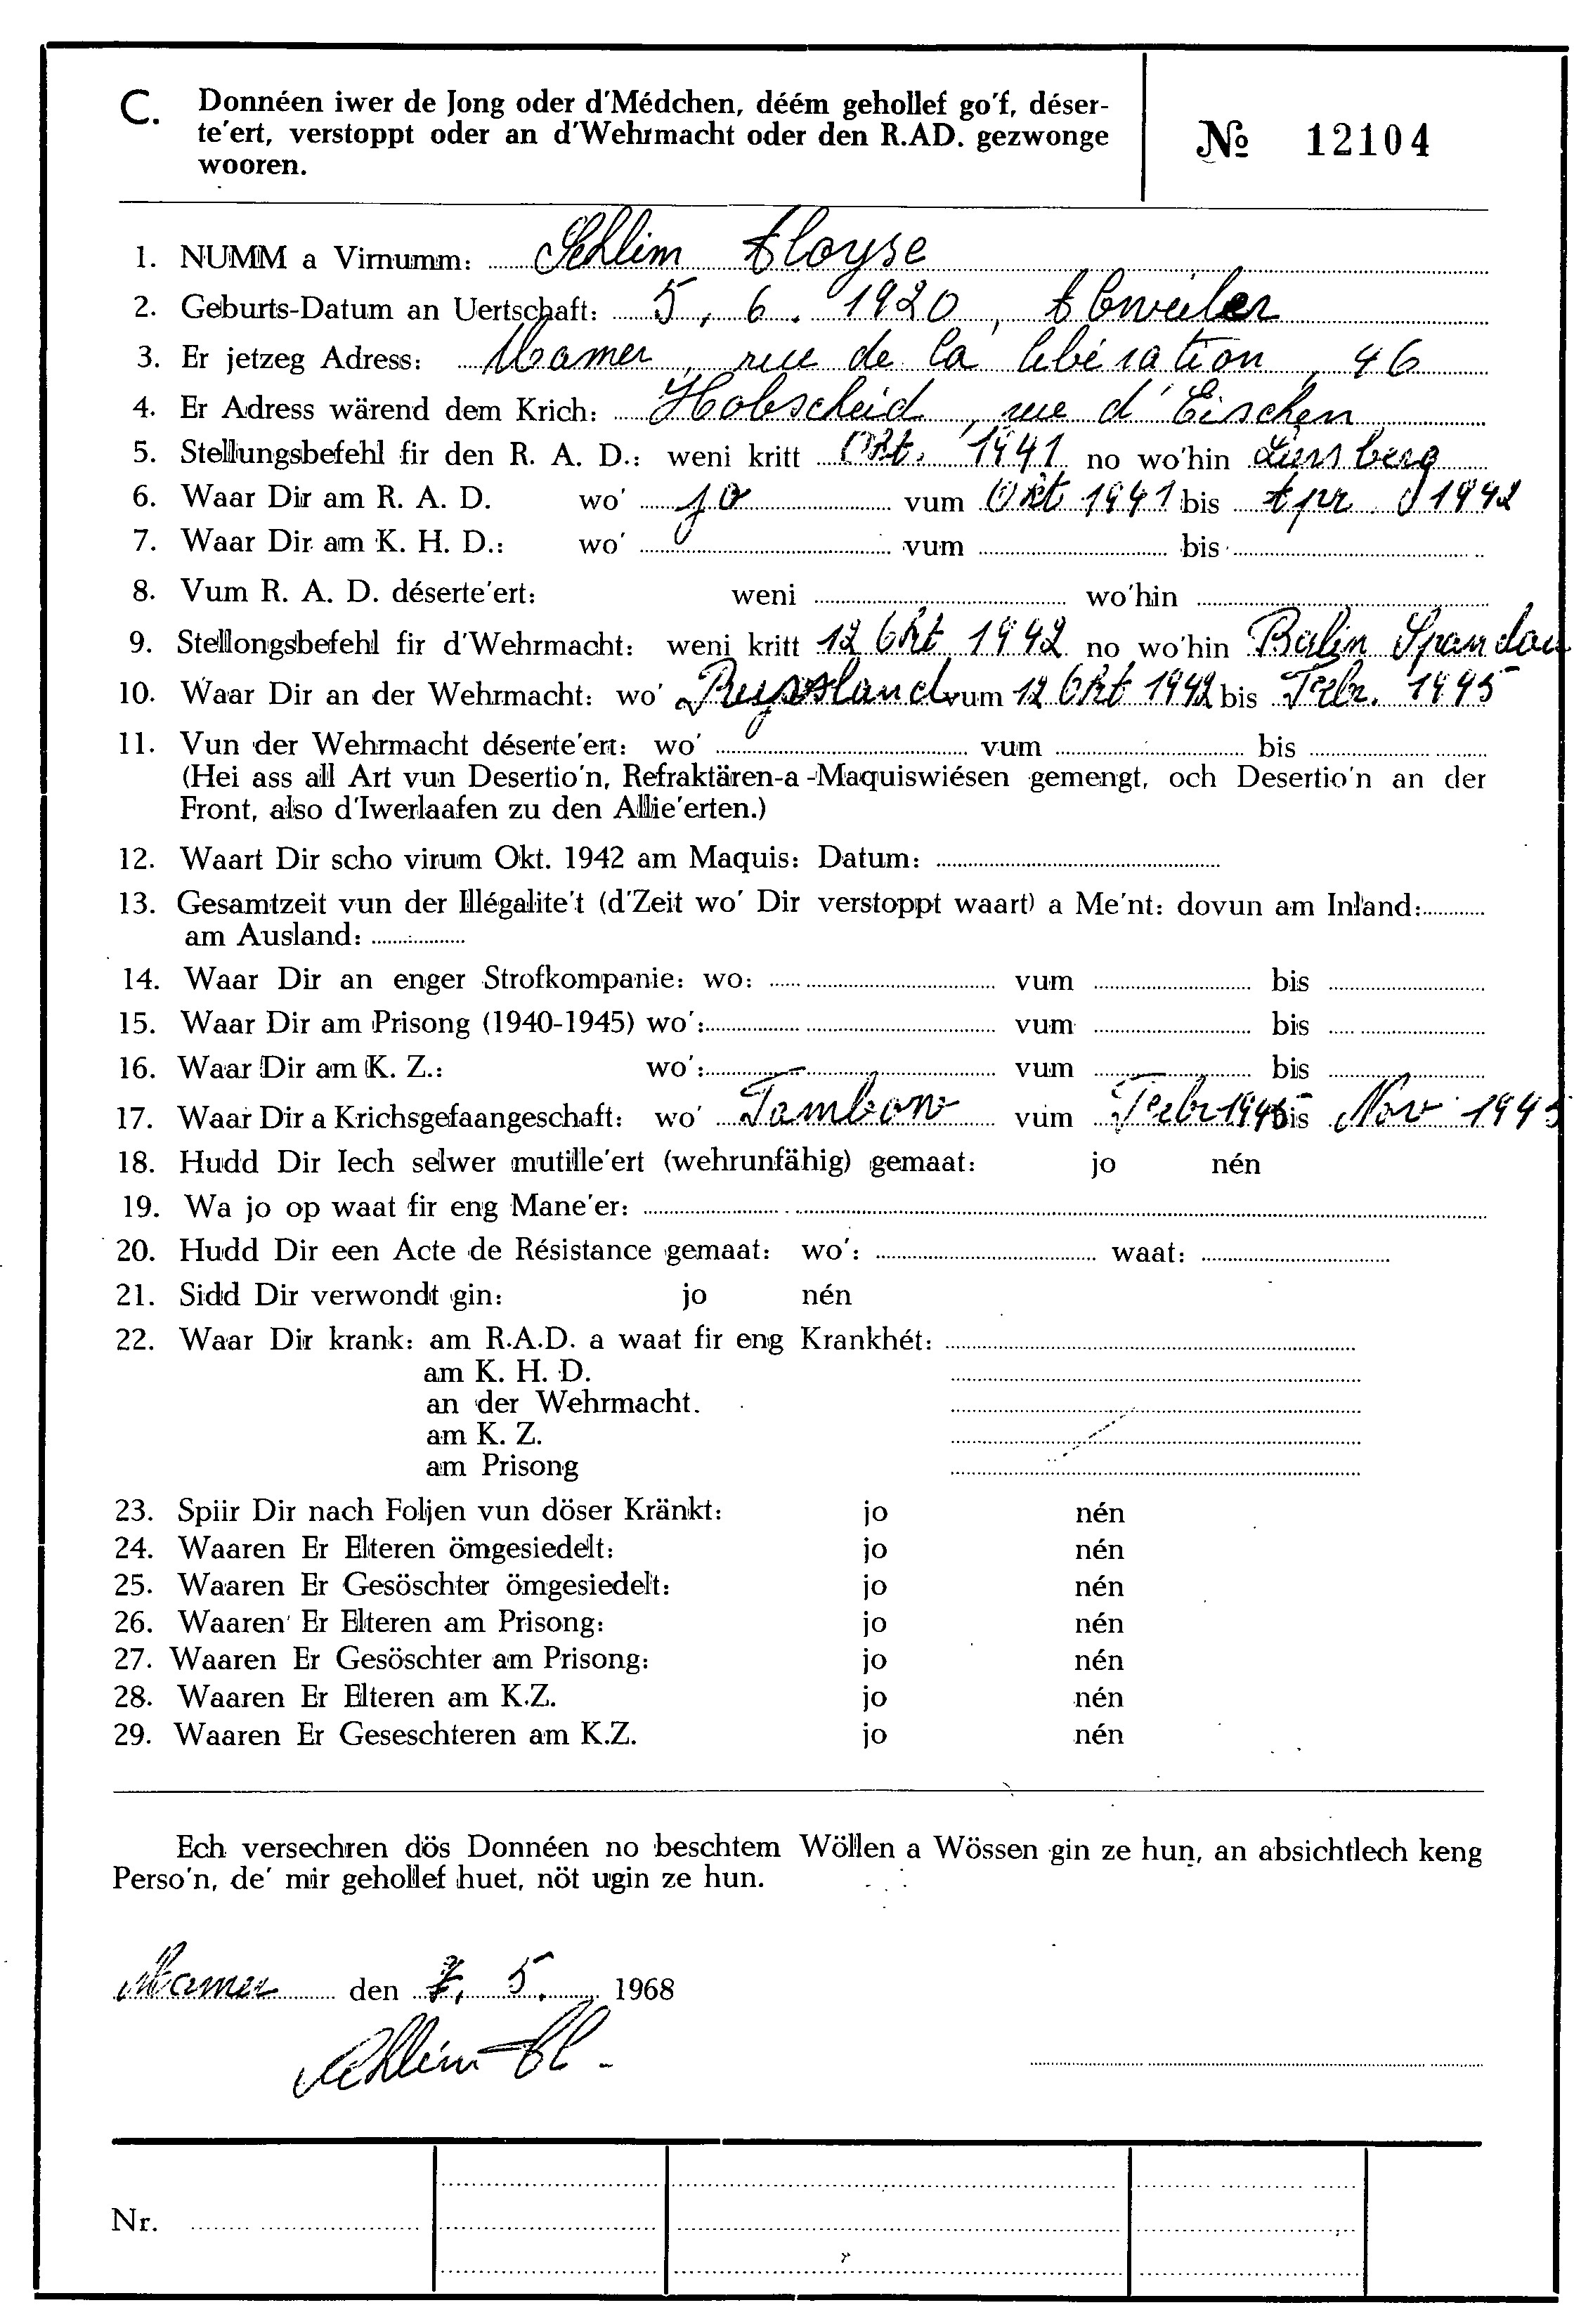 C. Donnéen iwer de Jong oder d'Médchen, déém gehollef go'f, déser-
te'ert, verstoppt oder an d'Wehrmacht oder den R.AD. gezwonge
wooren.
№ 12104
1. NUMM a Virnumm: Schlim Aloyse
2. Geburts-Datum an Uertschaft: 5. 6. 1920, Abweiler
3. Er jetzeg Adress: Mamer, rue de la libération, 46
4. Er Adress wärend dem Krich: Hobscheid, rue d'Eischen
5. Stellungsbefehl fir den R. A. D.: weni kritt Okt. 1941 no wo'hin
6. Waar Dir am R. A. D. wo' jo vum Okt 1941 bis Apr. 1942
7. Waar Dir am K. H. D.: wo' vum bis
8. Vum R. A. D. déserte'ert: weni wo'hin
9. Stellongsbefehl fir d'Wehrmacht: weni kritt 12 Okt 1942 no wo'hin Berlin Spandau
10. Waar Dir an der Wehrmacht: wo' Russland vum 12 Okt 1942 bis Febr. 1945
11. Vun der Wehrmacht déserte'ert: wo' vum bis
(Hei ass all Art vun Desertio'n, Refraktären-a -Maquiswiésen gemengt, och Desertio'n an der
Front, also d'Iwerlaafen zu den Allie'erten.)
12. Waart Dir scho virum Okt. 1942 am Maquis: Datum:
13. Gesamtzeit vun der Illégalite't (d'Zeit wo' Dir verstoppt waart) a Me'nt: dovun am Inland:
am Ausland:
14. Waar Dir an enger Strofkompanie: wo: vum bis
15. Waar Dir am Prisong (1940-1945) wo': vum bis
16. Waar Dir am K. Z.: wo': vum bis
17. Waar Dir a Krichsgefaangeschaft: wo' Tambow vum Febr 1945 bis Nov 1945
18. Hudd Dir Iech selwer mutille'ert (wehrunfähig) gemaat: jo nén
19. Wa jo op waat fir eng Mane'er:
20. Hudd Dir een Acte de Résistance gemaat: wo': waat:
21. Sidd Dir verwondt gin: jo nén
22. Waar Dir krank: am R.A.D. a waat fir eng Krankhét:
am K. H. D.
an der Wehrmacht.
am K. Z.
am Prisong
23. Spiir Dir nach Foljen vun döser Kränkt: jo nén
24. Waaren Er Elteren ömgesiedelt: jo nén
25. Waaren Er Gesöschter ömgesiedelt: jo nén
26. Waaren Er Elteren am Prisong: jo nén
27. Waaren Er Gesöschter am Prisong: jo nén
28. Waaren Er Elteren am K.Z. jo nén
29. Waaren Er Geseschteren am K.Z. jo nén
Ech versechren dös Donnéen no beschtem Wöllen a Wössen gin ze hun, an absichtlech keng
Perso'n, de' mir gehollef huet, nöt ugin ze hun.
Mamer den 7. 5. 1968
Schlim Al.
Nr.